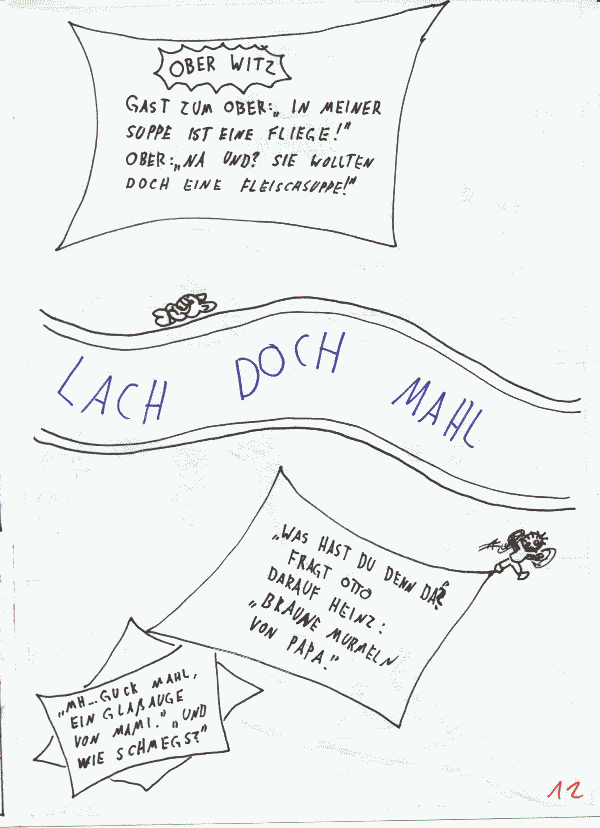 OBER WITZ
GAST ZUM OBER: „ IN MEINER
SUPPE IST EINE FLIEGE!"
OBER: „NA UND? SIE WOLLTEN
DOCH EINE FLEISCHSUPPE!"
LACH DOCH MAHL
„WAS HAST DU DENN DA?"
FRAGT OTTO
DARAUF HEINZ:
„BRAUNE MURMELN
VON PAPA."
„MH...GUCK MAHL,
EIN GLAßAUGE
VON MAMI." „UND
WIE SCHMEGS?"
12